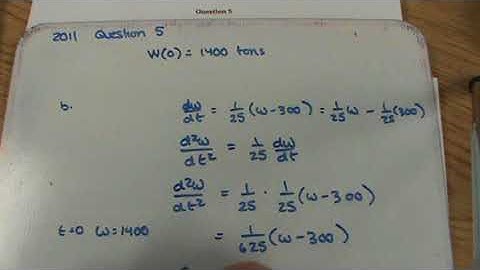 Question 5
2011 Question 5
W(0) = 1400 tons
b. dw/dt = 1/25 (w-300) = 1/25 w - 1/25 (300)
d²w/dt² = 1/25 dw/dt
d²w/dt² = 1/25 · 1/25 (w-300)
t=0 w=1400 = 1/625 (w-300)